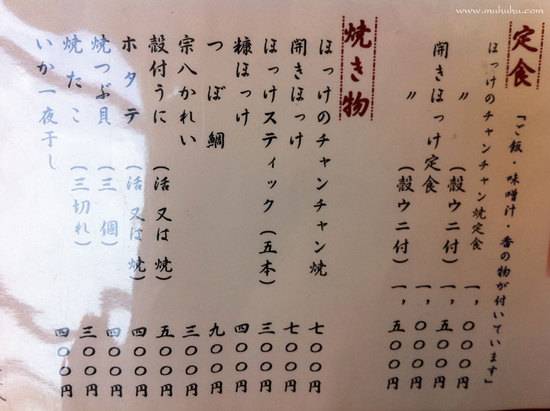 www.muhuhu.com
定食
「ご飯・味噌汁・香の物が付いています」
ほっけのチャンチャン焼定食 一,〇〇〇円
〃 (殻ウニ付) 一,五〇〇円
開きほっけ定食 一,〇〇〇円
〃 (殻ウニ付) 一,五〇〇円
焼き物
ほっけのチャンチャン焼 七〇〇円
開きほっけ 七〇〇円
ほっけスティック(五本) 三〇〇円
糠ほっけ 四〇〇円
つぼ鯛 九〇〇円
宗八かれい 三〇〇円
殻付うに (活又は焼) 五〇〇円
ホタテ (活又は焼) 四〇〇円
焼つぶ貝 (三個) 四〇〇円
焼たこ (三切れ) 三〇〇円
いか一夜干し 四〇〇円